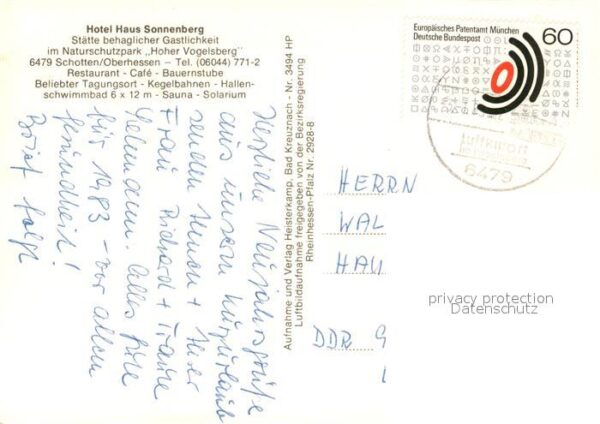 Hotel Haus Sonnenberg
Stätte behaglicher Gastlichkeit
im Naturschutzpark „Hoher Vogelsberg"
6479 Schotten/Oberhessen – Tel. (06044) 771-2
Restaurant - Café - Bauernstube
Beliebter Tagungsort - Kegelbahnen - Hallen-
schwimmbad 6 x 12 m - Sauna - Solarium
Herzliche Neujahrsgrüße
aus unserem Kurzurlaub
senden Ihnen + Ihrer
Frau Richard + Traute
Alles Gute
für 1983 - vor allem
Gesundheit!
Brief folgt
Aufnahme und Verlag Heisterkamp, Bad Kreuznach - Nr. 3494 HP
Luftbildaufnahme freigegeben von der Bezirksregierung
Rheinhessen-Pfalz Nr. 2928-8
Europäisches Patentamt München
Deutsche Bundespost
60
Luftkurort
6479
HERRN
WAL
HAU
DDR 9
privacy protection
Datenschutz